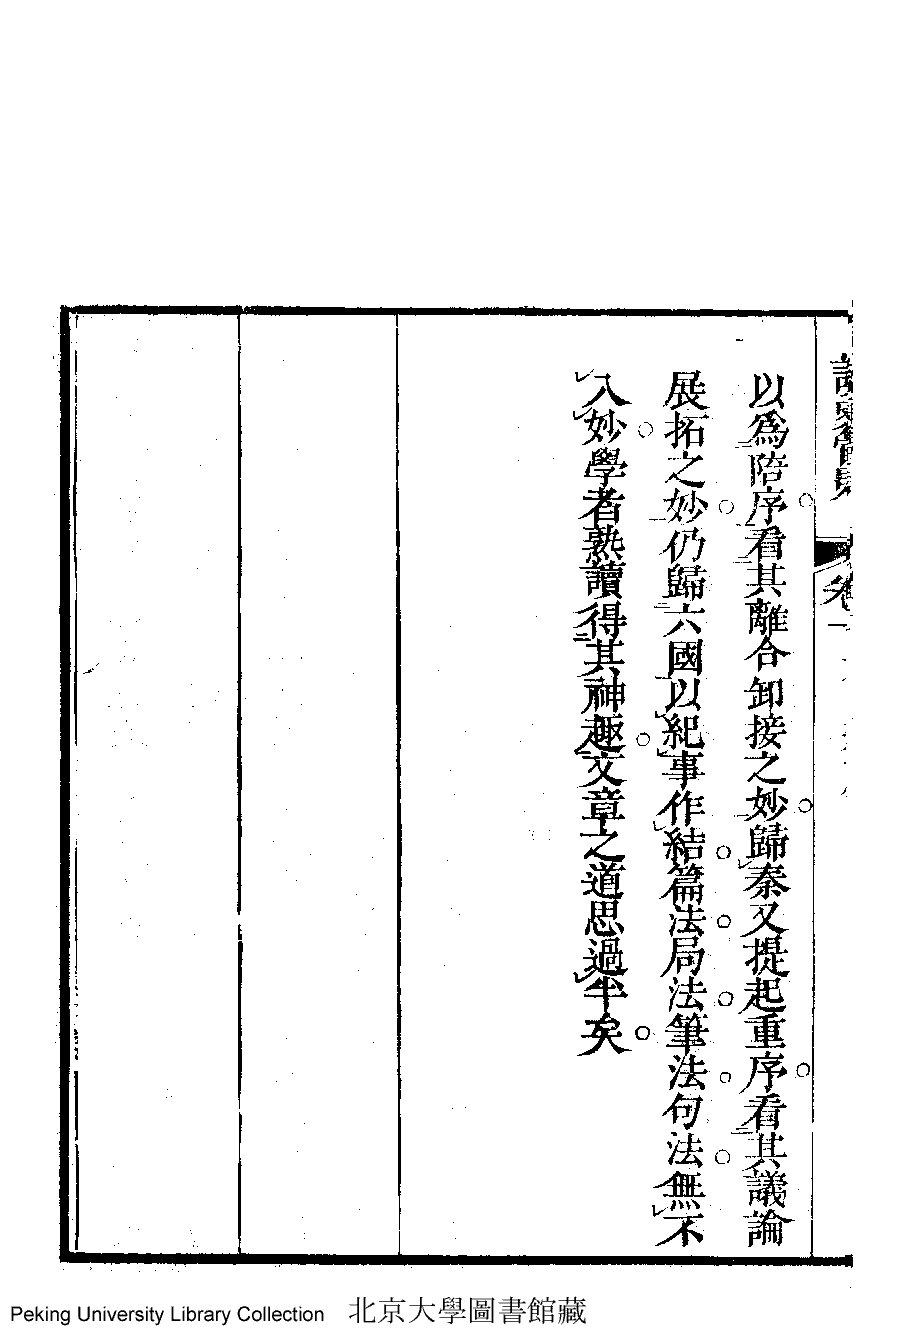 以爲陪序看其離合卸接之妙歸秦又提起重序看其議論
展拓之妙仍歸六國以紀事作結篇法局法筆法句法無不
入妙學者熟讀得其神趣文章之道思過半矣
Peking University Library Collection 北京大學圖書館藏